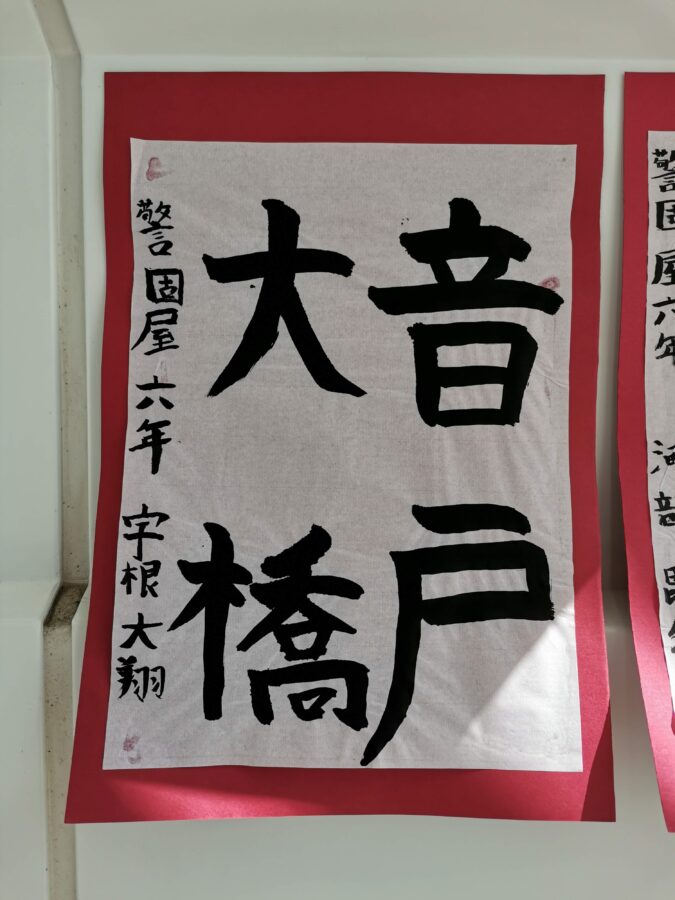 音戸
大橋
警固屋 六年 宇根 大翔
警固屋六年